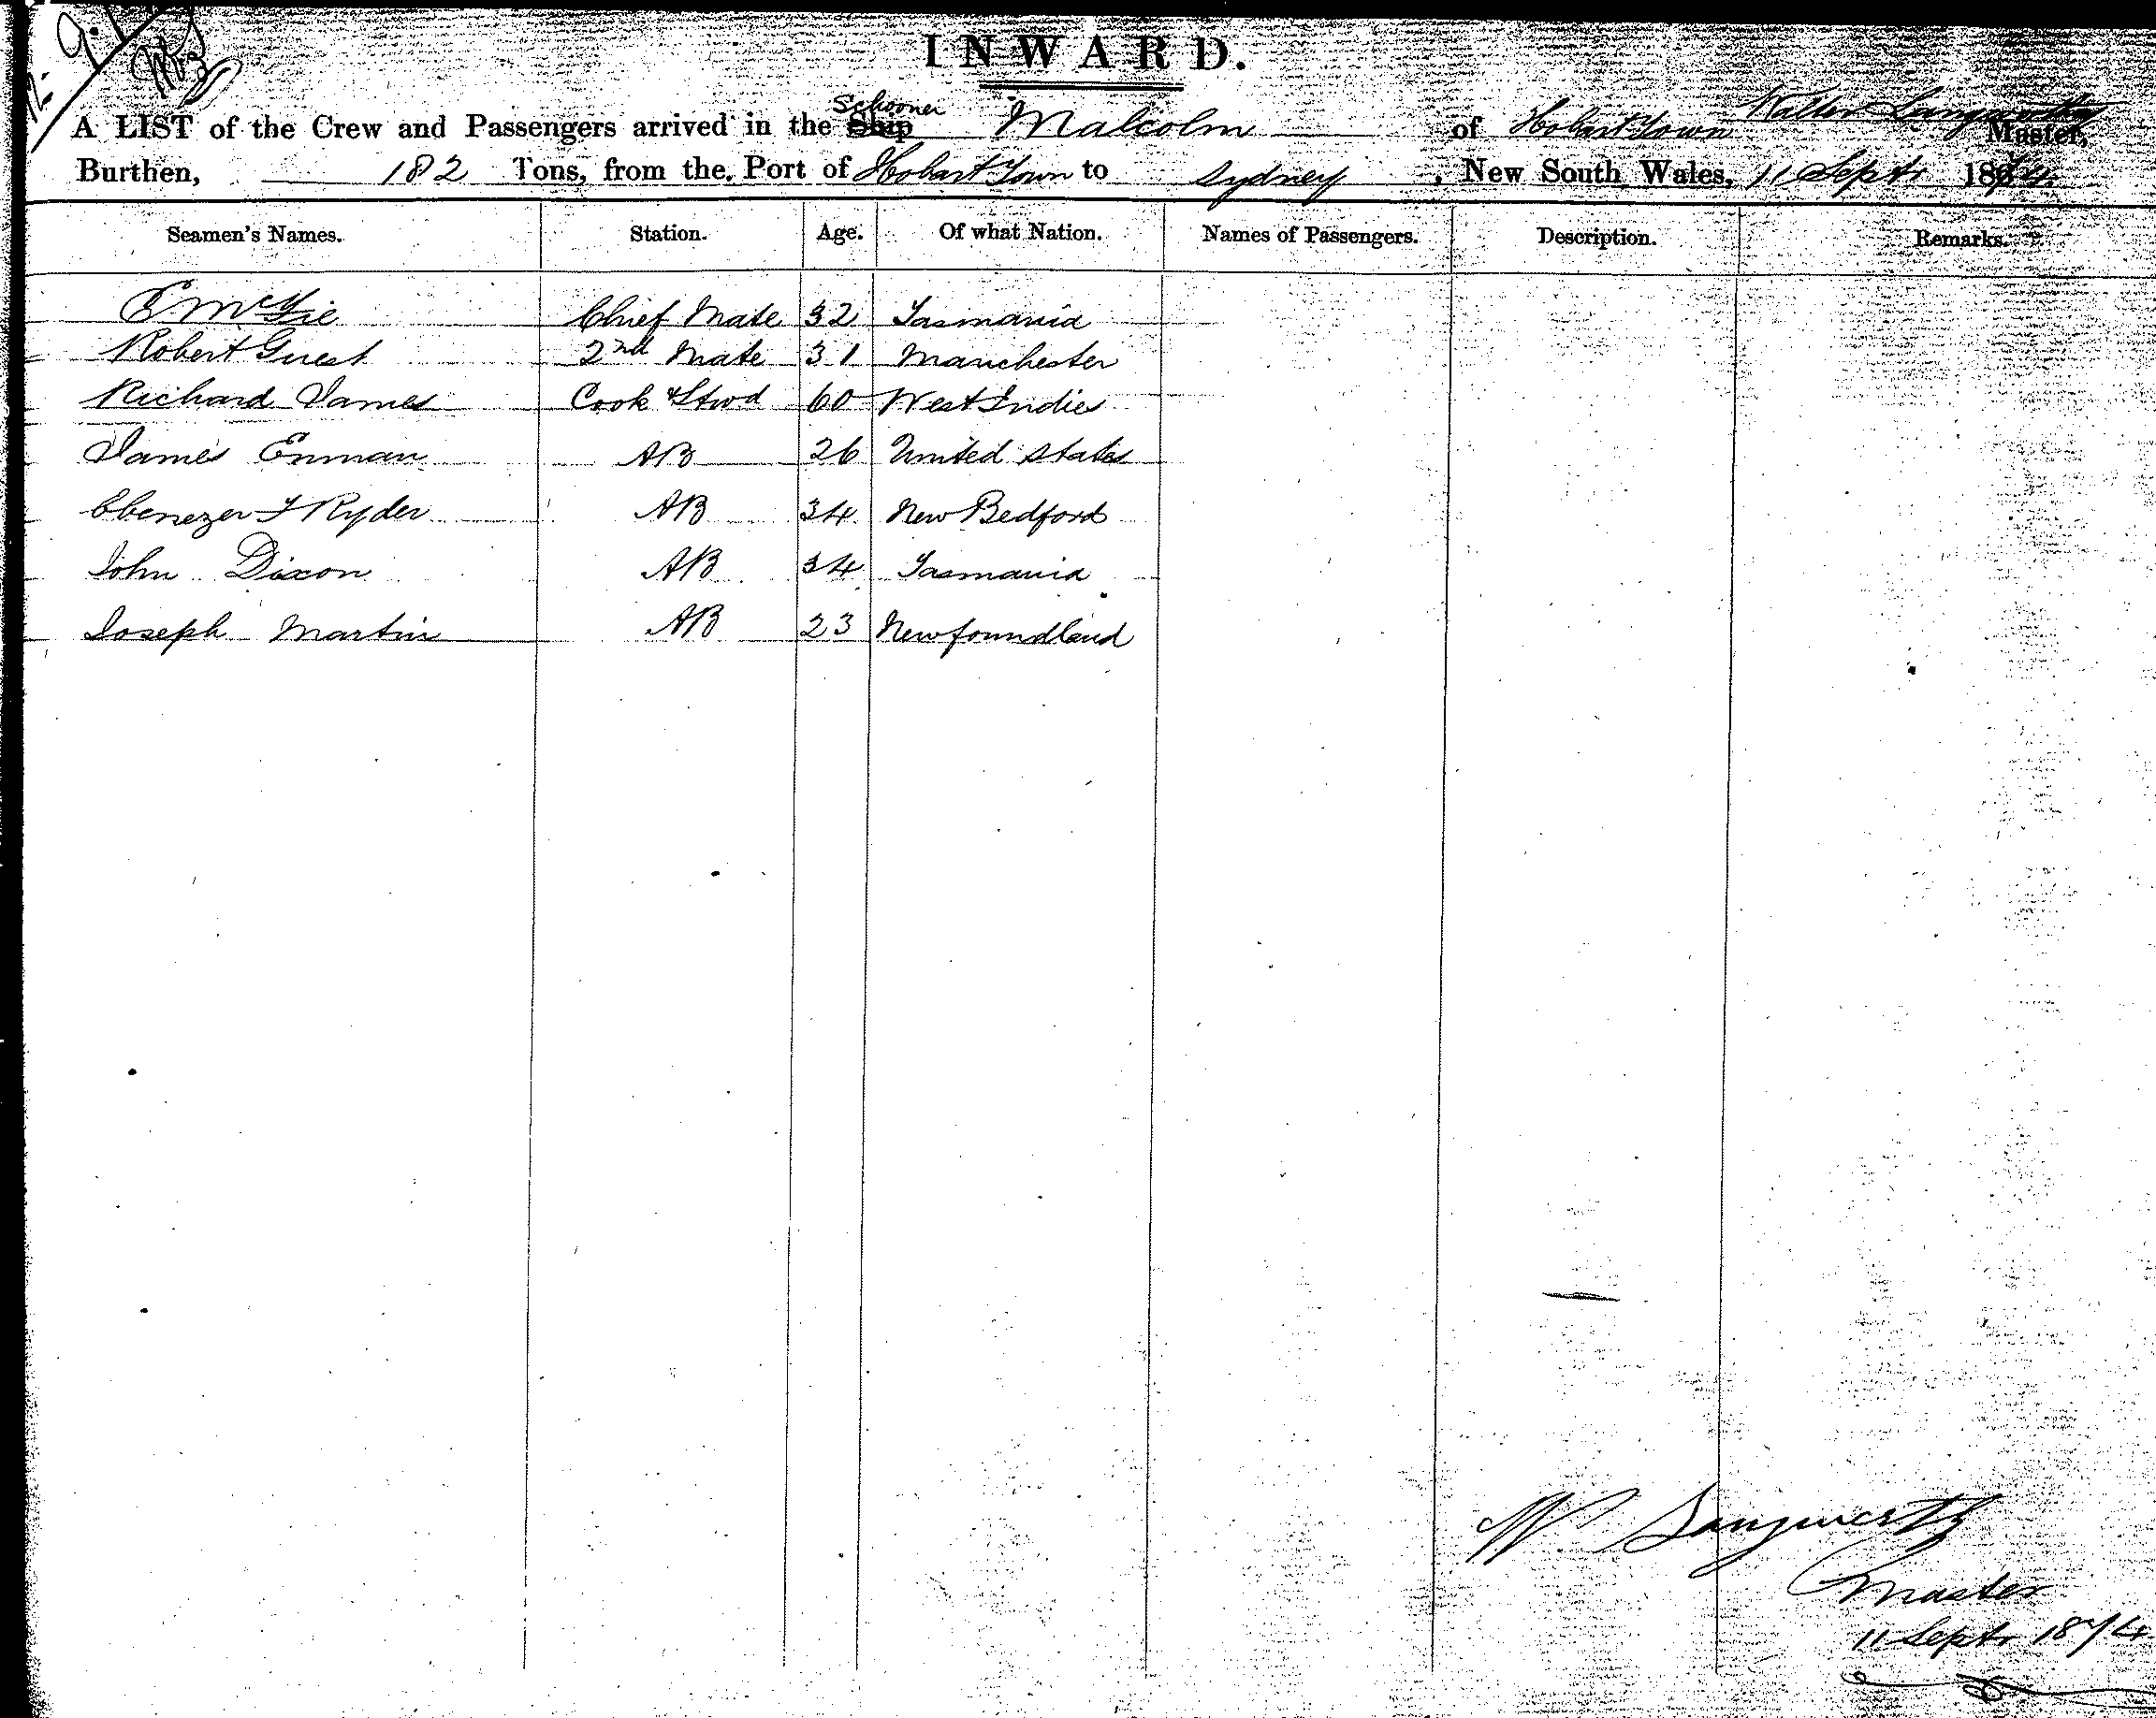 INWARD.
A LIST of the Crew and Passengers arrived in the Ship Schooner Malcolm of Hobart Town Walter Langworthy Master,
Burthen, 182 Tons, from the Port of Hobart Town to Sydney, New South Wales, 11 Septr 1874
Seamen's Names. Station. Age. Of what Nation. Names of Passengers. Description. Remarks.
E McGie Chief Mate 32 Tasmania
Robert Guest 2nd Mate 31 Manchester
Richard James Cook & Stwd 60 West Indies
James Enman AB 26 United States
Ebenezer F Ryder AB 34 New Bedford
John Dixon AB 34 Tasmania
Joseph Martin AB 23 Newfoundland
W Langworthy
Master
11 Septr 1874